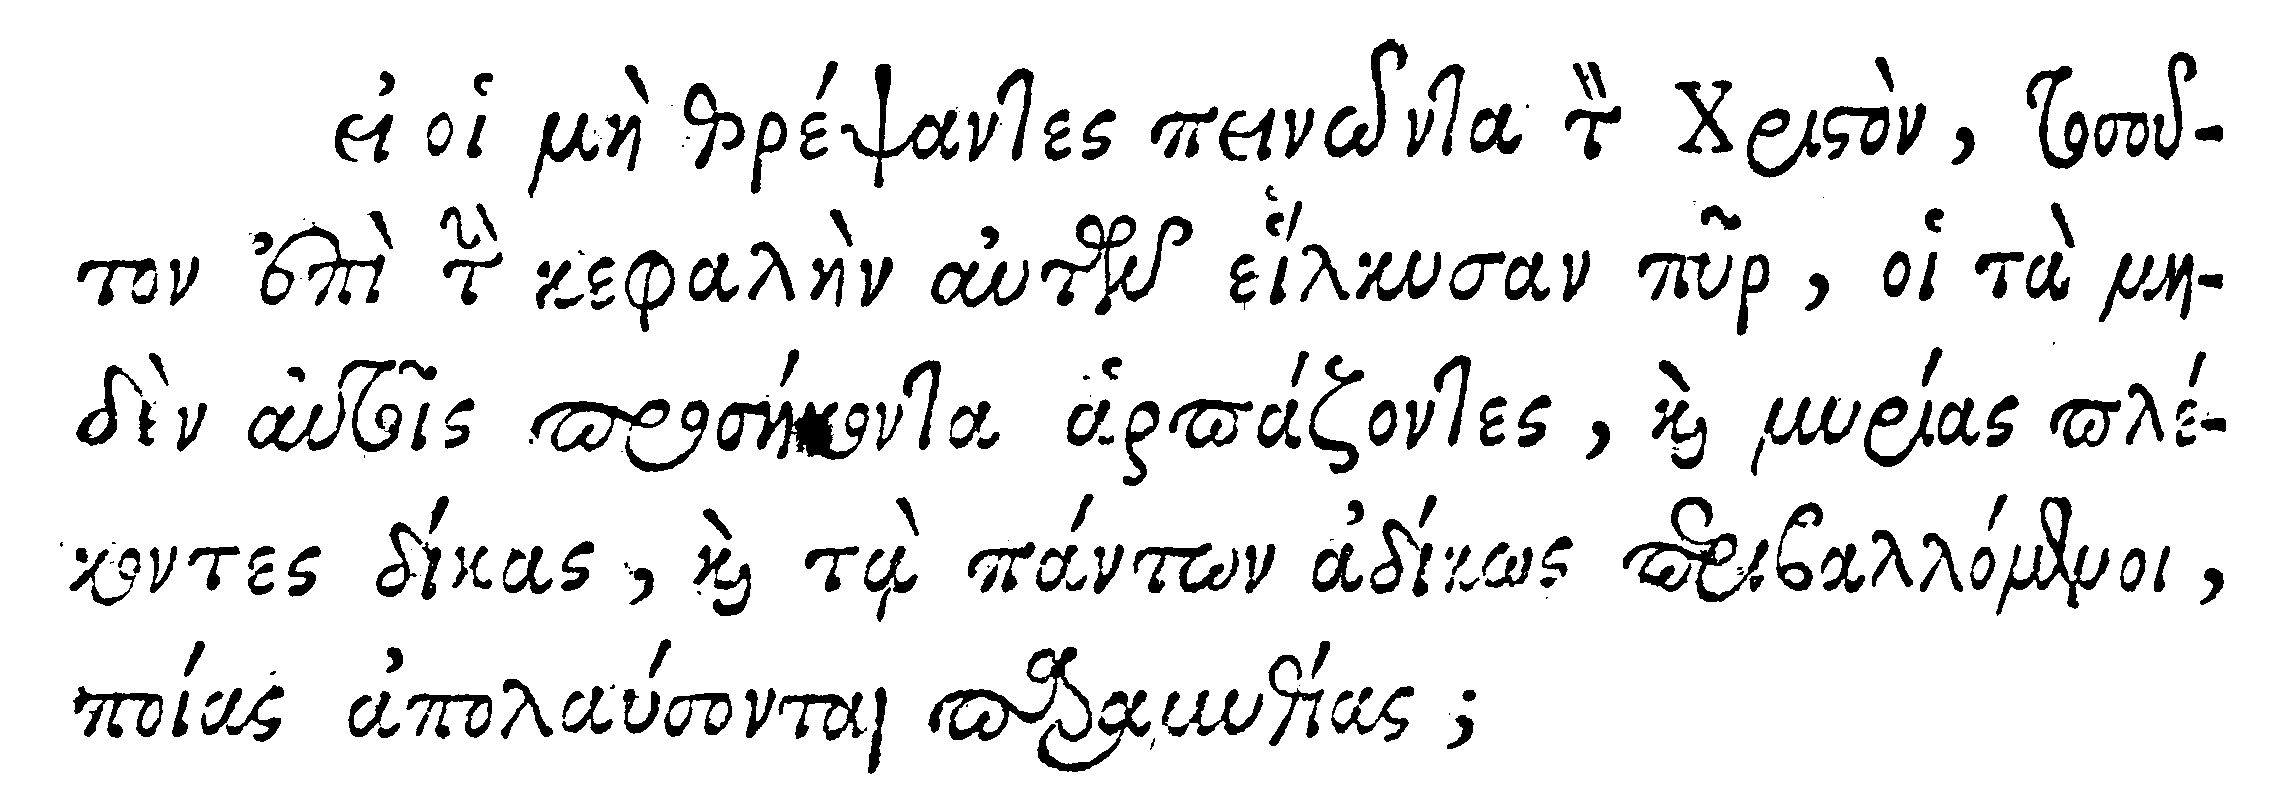 εἰ οἱ μὴ θρέψαντες πεινῶντα τὸν Χριστὸν, τοσοῦ-
τον ἐπὶ τὴν κεφαλὴν αὐτῶν εἵλκυσαν πῦρ, οἱ τὰ μη-
δὲν αὐτοῖς προσήκοντα ἁρπάζοντες, καὶ μυρίας πλέ-
κοντες δίκας, καὶ τὰ πάντων ἀδίκως περιβαλλόμενοι,
ποίας ἀπολαύσονται παραμυθίας;